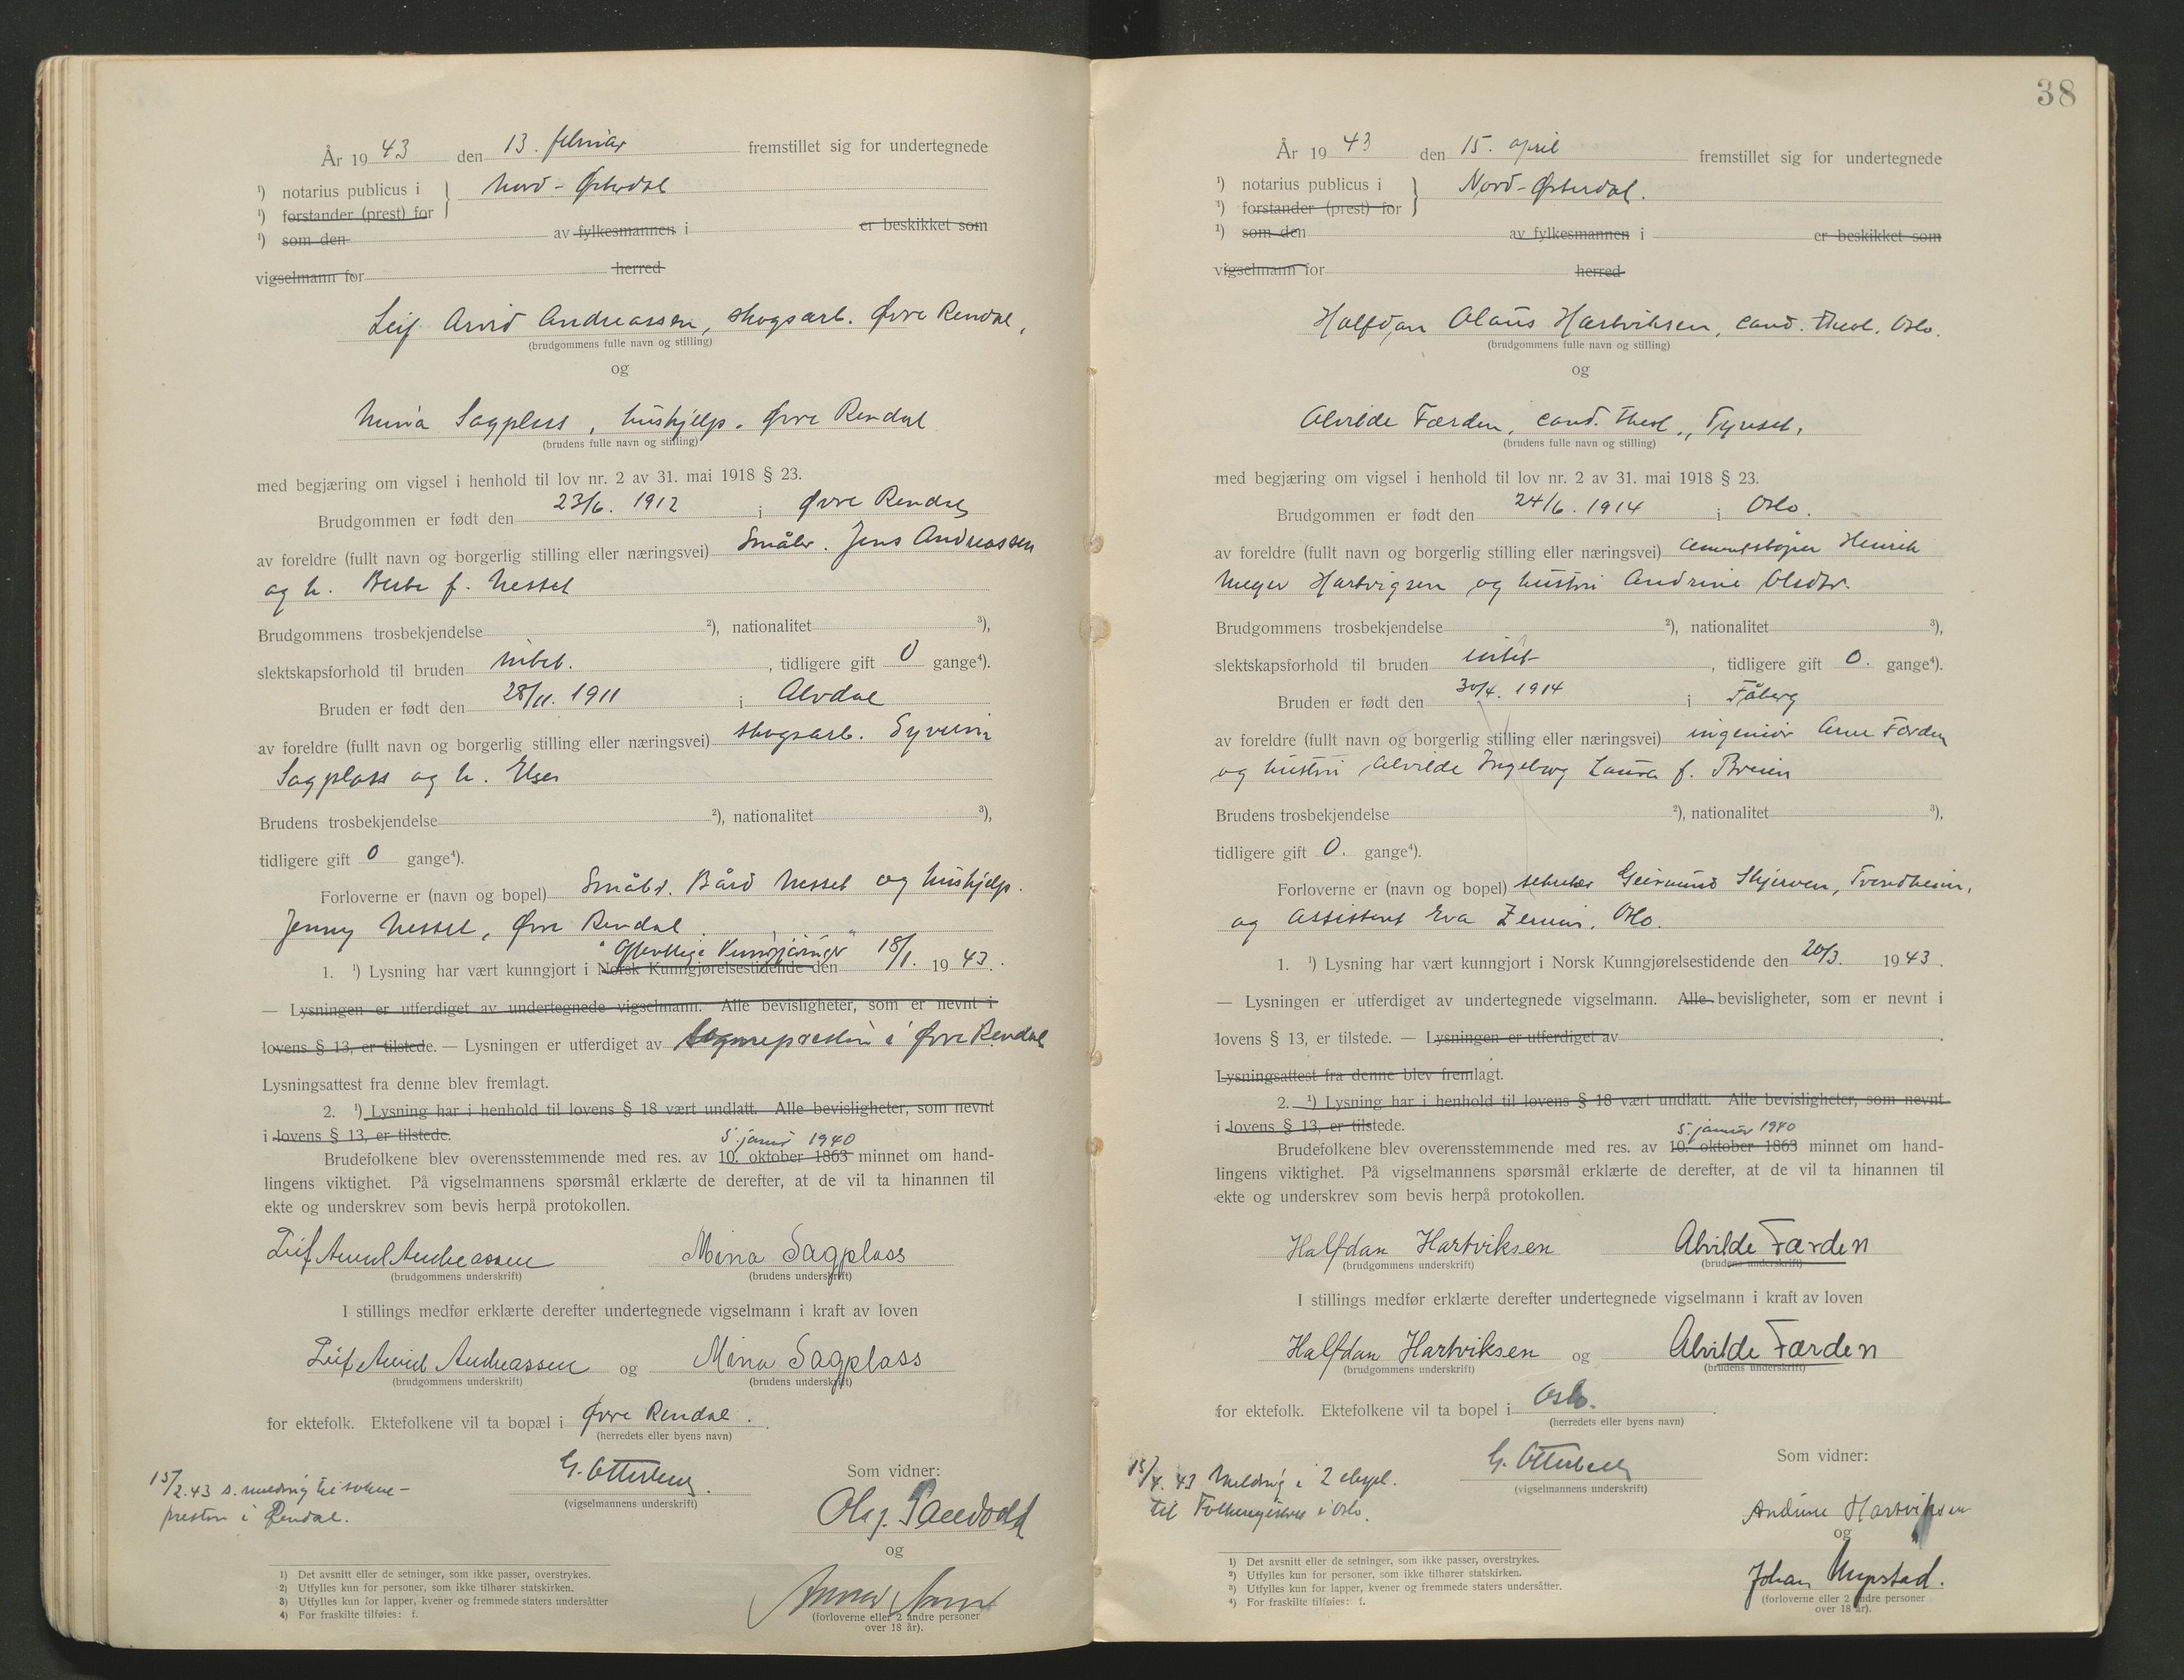 År 19 43 den 13. februar fremstillet sig for undertegnede
¹) notarius publicus i } Nord-Østerdal
¹) forstander (prest) for
¹) som den av fylkesmannen i er beskikket som
vigselmann for herred
Leif Arvid Andreassen, skogsarb. Øvre Rendal,
(brudgommens fulle navn og stilling)
og
Mina Sagplass, hushjelp. Øvre Rendal
(brudens fulle navn og stilling)
med begjæring om vigsel i henhold til lov nr. 2 av 31. mai 1918 § 23.
Brudgommen er født den 23/6. 1912 i Øvre Rendal
av foreldre (fullt navn og borgerlig stilling eller næringsvei) Småbr. Jens Andreassen
og h. Berte f. Nesset
Brudgommens trosbekjendelse ²), nationalitet ³),
slektskapsforhold til bruden intet. , tidligere gift 0 gange⁴).
Bruden er født den 28/11. 1911 i Alvdal
av foreldre (fullt navn og borgerlig stilling eller næringsvei) skogsarb. Syverin
Sagplass og h. Elsen
Brudens trosbekjendelse ²), nationalitet ³),
tidligere gift 0 gange⁴).
Forloverne er (navn og bopel) Småbr. Bård Nesset og hushjelp.
Jenny Nesset, Øvre Rendal.
"Offentlige Kunngjøringer"
1. ¹) Lysning har vært kunngjort i Norsk Kunngjørelsestidende den 18/1. 19 43.
— Lysningen er utferdiget av undertegnede vigselmann. Alle bevisligheter, som er nevnt i
lovens § 13, er tilstede. — Lysningen er utferdiget av sogneprestén i Øvre Rendal
Lysningsattest fra denne blev fremlagt.
2. ¹) Lysning har i henhold til lovens § 18 vært undlatt. Alle bevisligheter, som nevnt
i lovens § 13, er tilstede.
5. januar 1940
Brudefolkene blev overensstemmende med res. av 10. oktober 1863 minnet om hand-
lingens viktighet. På vigselmannens spørsmål erklærte de derefter, at de vil ta hinannen til
ekte og underskrev som bevis herpå protokollen.
Leif Arvid Andreassen Mina Sagplass
(brudgommens underskrift) (brudens underskrift)
I stillings medfør erklærte derefter undertegnede vigselmann i kraft av loven
Leif Arvid Andreassen og Mina Sagplass
(brudgommens underskrift) (brudens underskrift)
for ektefolk. Ektefolkene vil ta bopæl i Øvre Rendal.
(herredets eller byens navn)
G. Otterbech.
(vigselmannens underskrift)
15/2.43 s. melding til sokne-
presten i Rendal.
Som vidner:
Olaf
og
(forloverne eller 2 andre personer
over 18 år).
1) Det avsnitt eller de setninger, som ikke passer, overstrykes.
2) Utfylles kun for personer, som ikke tilhører statskirken.
3) Utfylles kun for lapper, kvener og fremmede staters undersåtter
4) For fraskilte tilføies: f.
38
År 19 43 den 15. april fremstillet sig for undertegnede
¹) notarius publicus i } Nord-Østerdal.
¹) forstander (prest) for
¹) som den av fylkesmannen i er beskikket som
vigselmann for herred
Halfdan Olaus Hartviksen, cand. theol. Oslo.
(brudgommens fulle navn og stilling)
og
Alvilde Færden, cand. theol., Tynset.
(brudens fulle navn og stilling)
med begjæring om vigsel i henhold til lov nr. 2 av 31. mai 1918 § 23.
Brudgommen er født den 24/6. 1914 i Oslo.
av foreldre (fullt navn og borgerlig stilling eller næringsvei) Henrik
Meyer Hartvigsen og hustru Andrine Olsdtr.
Brudgommens trosbekjendelse ²), nationalitet ³),
slektskapsforhold til bruden intet , tidligere gift 0. gange⁴).
Bruden er født den 30/4. 1914 i Fåberg
av foreldre (fullt navn og borgerlig stilling eller næringsvei) ingeniør Arne Færden
og hustru Alvilde Ingeborg Laura f. Breien
Brudens trosbekjendelse ²), nationalitet ³),
tidligere gift 0. gange⁴).
Forloverne er (navn og bopel) sekretær Geirmund Skjerven, Trondheim,
og Assistent Eva Zernin, Oslo.
1. ¹) Lysning har vært kunngjort i Norsk Kunngjørelsestidende den 20/3. 19 43.
— Lysningen er utferdiget av undertegnede vigselmann. Alle bevisligheter, som er nevnt i
lovens § 13, er tilstede. — Lysningen er utferdiget av
Lysningsattest fra denne blev fremlagt.
2. ¹) Lysning har i henhold til lovens § 18 vært undlatt. Alle bevisligheter, som nevnt
i lovens § 13, er tilstede.
5. januar 1940
Brudefolkene blev overensstemmende med res. av 10. oktober 1863 minnet om hand-
lingens viktighet. På vigselmannens spørsmål erklærte de derefter, at de vil ta hinannen til
ekte og underskrev som bevis herpå protokollen.
Halfdan Hartviksen Alvilde Færden
(brudgommens underskrift) (brudens underskrift)
I stillings medfør erklærte derefter undertegnede vigselmann i kraft av loven
Halfdan Hartviksen og Alvilde Færden
(brudgommens underskrift) (brudens underskrift)
for ektefolk. Ektefolkene vil ta bopel i Oslo.
(herredets eller byens navn)
G. Otterbech
(vigselmannens underskrift)
15/4. 43 Melding i 2 ekspl.
til Folkeregisteret i Oslo.
Som vidner:
Andrine Hartviksen
og
Johan Nypstad.
(forloverne eller 2 andre personer
over 18 år).
1) Det avsnitt eller de setninger, som ikke passer, overstrykes.
2) Utfylles kun for personer, som ikke tilhører statskirken.
3) Utfylles kun for lapper, kvener og fremmede staters undersåtter.
4) For fraskilte tilføies: f.